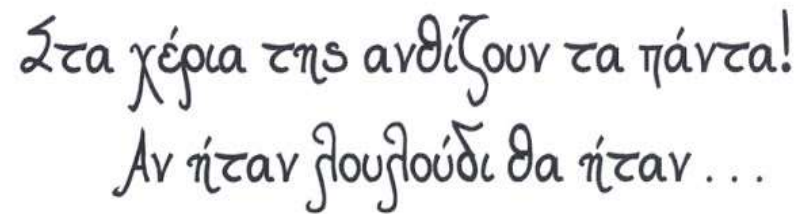 Στα χέρια της ανθίζουν τα πάντα!
Αν ήταν λουλούδι θα ήταν...